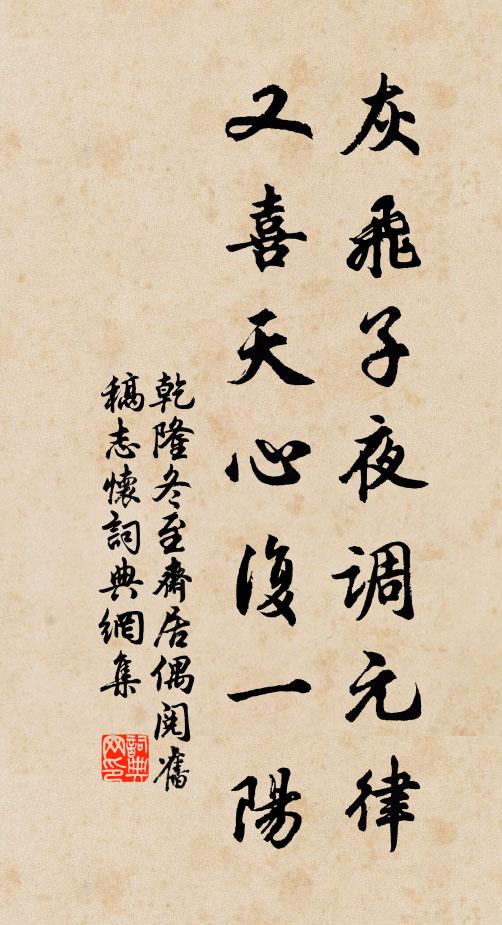 灰飛子夜调元律
又喜天心復一陽
乾隆冬至齋居偶閱舊
稿志懷詞典網集
詞典网印